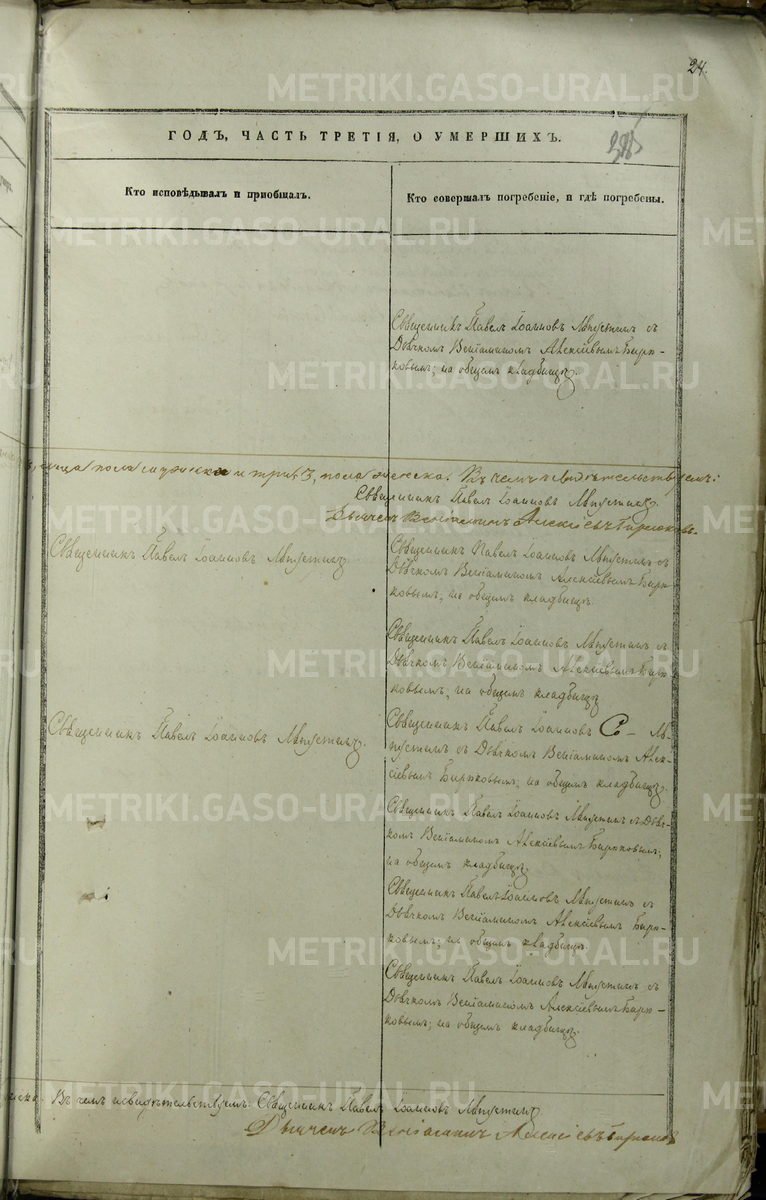 24.
ГОДЪ, ЧАСТЬ ТРЕТІЯ, О УМЕРШИХЪ.
Кто исповѣдывалъ и пріобщалъ.
Кто совершалъ погребеніе, и гдѣ погребены.
Священникъ Павелъ Іоанновъ съ
Дьячкомъ Веніаминомъ Алексіевымъ Бирю-
ковымъ; на общемъ кладбищѣ.
пола мужеска и три 3, пола женска. Въ чемъ свидѣтельствуемъ:
Священникъ Павелъ Іоанновъ
Дьячекъ Веніаминъ Алексіевъ Бирюковъ.
Священникъ Павелъ Іоанновъ
Священникъ Павелъ Іоанновъ съ
Дьячкомъ Веніаминомъ Алексіевымъ Бирю-
ковымъ; на общемъ кладбищѣ.
Священникъ Павелъ Іоанновъ съ
Дьячкомъ Веніаминомъ Алексіевымъ Бирю-
ковымъ; на общемъ кладбищѣ
Священникъ Павелъ Іоанновъ
Священникъ Павелъ Іоанновъ
съ Дьячкомъ Веніаминомъ Алек-
сіевымъ Бирюковымъ; на общемъ кладбищѣ.
Священникъ Павелъ Іоанновъ съ Дьяч-
комъ Веніаминомъ Алексіевымъ Бирюковымъ;
на общемъ кладбищѣ.
Священникъ Павелъ Іоанновъ съ
Дьячкомъ Веніаминомъ Алексіевымъ Бирю-
ковымъ; на общемъ кладбищѣ.
Священникъ Павелъ Іоанновъ съ
Дьячкомъ Веніаминомъ Алексіевымъ Бирю-
ковымъ; на общемъ кладбищѣ.
Въ чемъ и свидѣтельствуемъ: Священникъ Павелъ Іоанновъ
Дьячекъ Веніаминъ Алексіевъ Бирюковъ
METRIKI.GASO-URAL.RU